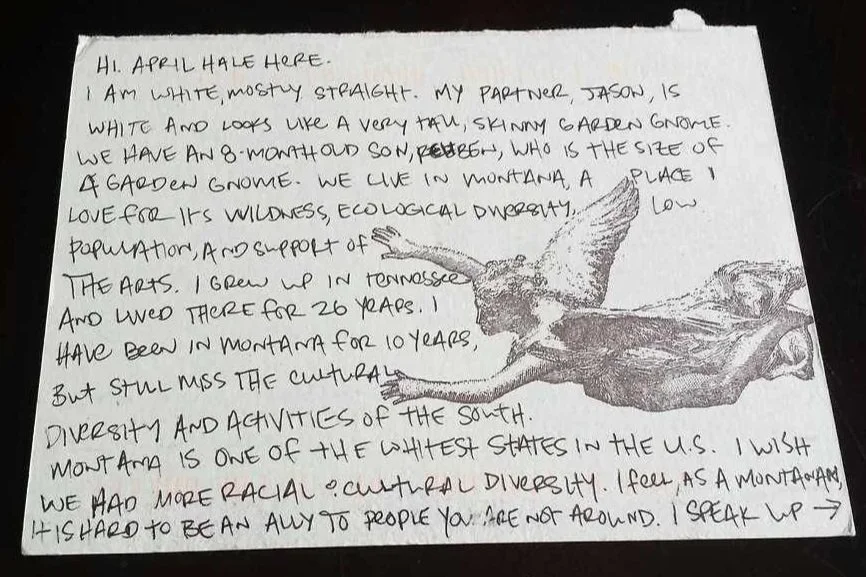 HI. APRIL HALE HERE.
I AM WHITE, MOSTLY STRAIGHT. MY PARTNER, JASON, IS
WHITE AND LOOKS LIKE A VERY TALL, SKINNY GARDEN GNOME.
WE HAVE AN 8-MONTH OLD SON, REUBEN, WHO IS THE SIZE OF
A GARDEN GNOME. WE LIVE IN MONTANA, A PLACE I
LOVE FOR ITS WILDNESS, ECOLOGICAL DIVERSITY, LOW
POPULATION, AND SUPPORT OF
THE ARTS. I GREW UP IN TENNESSEE
AND LIVED THERE FOR 26 YEARS. I
HAVE BEEN IN MONTANA FOR 10 YEARS,
BUT STILL MISS THE CULTURAL
DIVERSITY AND ACTIVITIES OF THE SOUTH.
MONTANA IS ONE OF THE WHITEST STATES IN THE U.S. I WISH
WE HAD MORE RACIAL & CULTURAL DIVERSITY. I FEEL, AS A MONTANAN,
IT IS HARD TO BE AN ALLY TO PEOPLE YOU ARE NOT AROUND. I SPEAK UP →